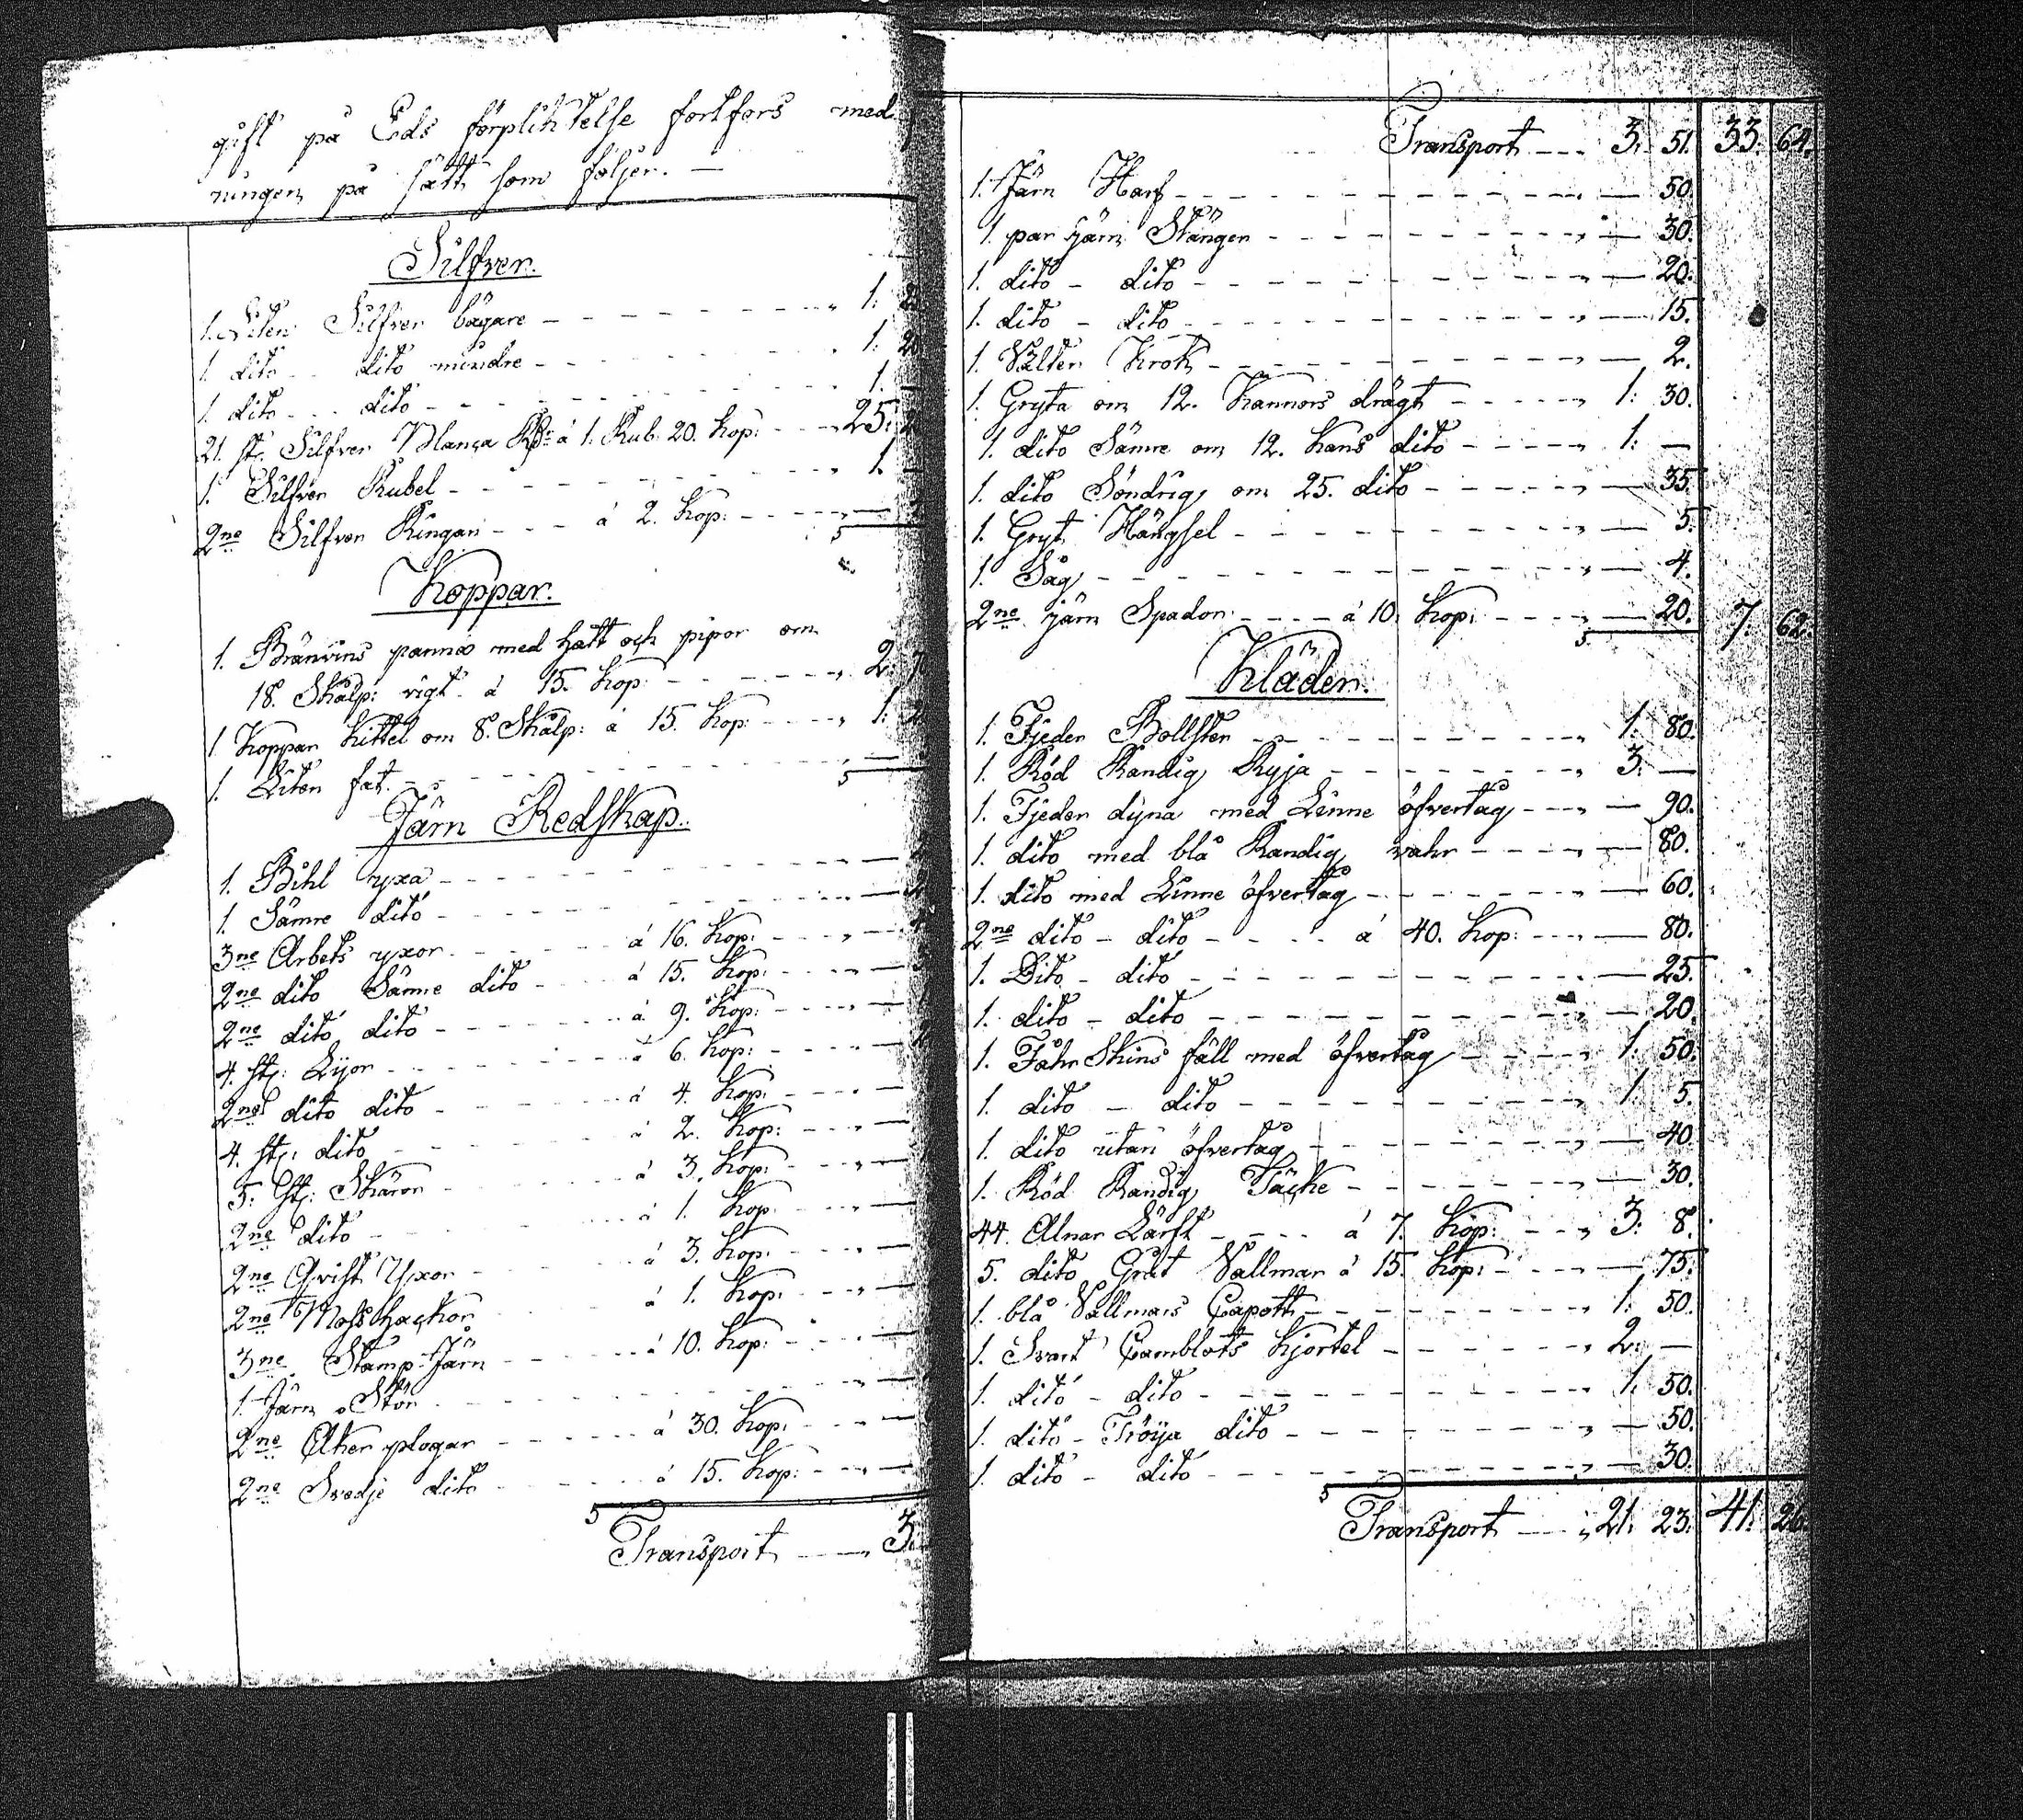 gift på Eds förplichtelse fortfors med
ningen på sätt som följer. —
Silfver.
1. Liten Silfver bägare - - - 1: 2
1. dito - dito mindre - - - 1: 20
1. dito - - dito - - - 1. —
21. st. Silfver à 1. Rub. 20. Kop: - - - 25: 2
1. Silfver Rubel - - - 1. —
2ne Silfver Ringar - - - à 2. Kop: - - - —
Koppar.
1. Bränvins panna med hatt och pipor om
18. Skålp: vigt à 15. Kop: - - - 2. 7
1 Koppar Kittel om 8. Skålp: à 15. Kop: - - - 1: 2
1. Liten fat. - - - —
Järn Redskap.
1. Bihl yxa - - - —
1 Sämre dito - - - —
3ne Arbets yxor - - - à 16. Kop: - - - —
2ne dito Sämre dito - - - à 15. Kop: - - - —
2ne dito dito - - - à 9. Kop: - - - —
4. st: Lijor - - - à 6. Kop: - - - —
2ne dito dito - - - à 4. Kop: - - - —
4. st: dito - - - à 2. Kop: - - - —
5. st: Skäror - - - à 3. Kop: - - - —
2ne dito - - - à 1. Kop: - - - —
2ne Qvist Yxor - - - à 3. Kop: - - - —
2ne Måsshackor - - - à 1. Kop: - - - —
3ne Stamp Järn - - - à 10. Kop: - - - —
1. Järn Stör - - - —
2ne Åker plogar - - - à 30. Kop: - - - —
2ne Svedje dito - - - à 15. Kop: - - - —
Transport - - - 3.
Transport - - - 3. 51. 33. 64.
1. Järn Harf - - - — 50.
1. par järn Stänger - - - — 30.
1. dito - dito - - - — 20.
1. dito - dito - - - — 15.
1. Välter Krok - - - — 2.
1. Gryta om 12. Kannors drägt - - - 1: 30.
1. dito Sämre om 12. Kans dito - - - 1: —
1. dito Söndrig om 25. dito - - - — 35.
1. Gryt Hängsel - - - — 5.
1. Såg - - - — 4.
2ne järn Spador - - - à 10. Kop: - - - — 20. 7. 62.
Kläder.
1. Fjeder Bollster - - - 1: 80.
1. Röd Randig Ryja - - - 3. —
1. Fjeder dyna med Linne öfvertåg - - - — 90.
1. dito med blå Randig vahr - - - — 80.
1. dito med Linne öfvertåg - - - — 60.
2ne dito - dito - - - à 40. Kop: - - - — 80.
1. Dito - dito - - - — 25.
1. dito - dito - - - — 20.
1. Fåhr Skins fäll med öfvertåg - - - 1: 50.
1. dito - dito - - - 1: 5.
1. dito utan öfvertåg - - - — 40.
1. Röd Randig Täcke - - - — 30.
44. Alnar Lärft - - - à 7. Kop: - - - 3: 8.
5. dito Grät Vallmar à 15. Kop: - - - — 75.
1. blå Vallmars Capott - - - 1: 50.
1. Svart Camblots Kjortel - - - 2: —
1. dito - dito - - - 1. 50.
1. dito - Tröija dito - - - — 50.
1. dito - dito - - - — 30.
Transport - - - 21. 23. 41. 26.